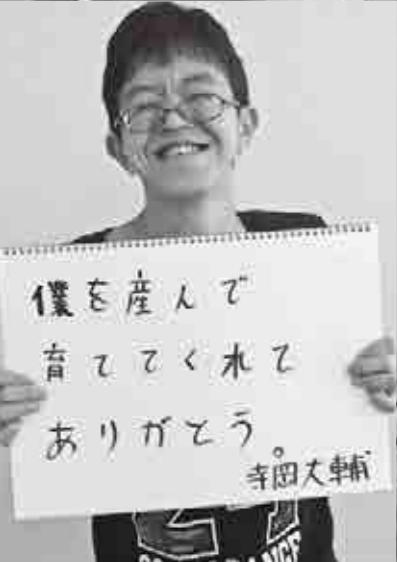 僕を産んで
育ててくれて
ありがとう。
寺岡大輔